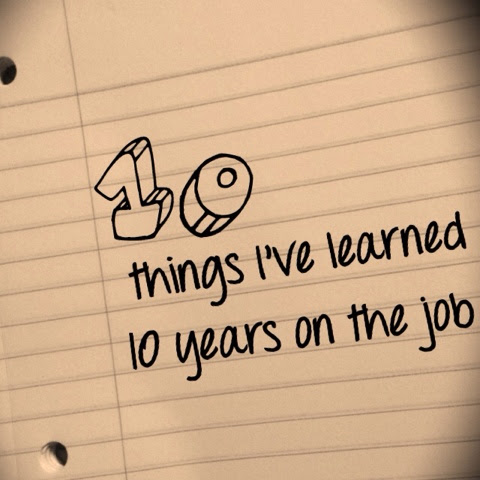 10
things I've learned
10 years on the job